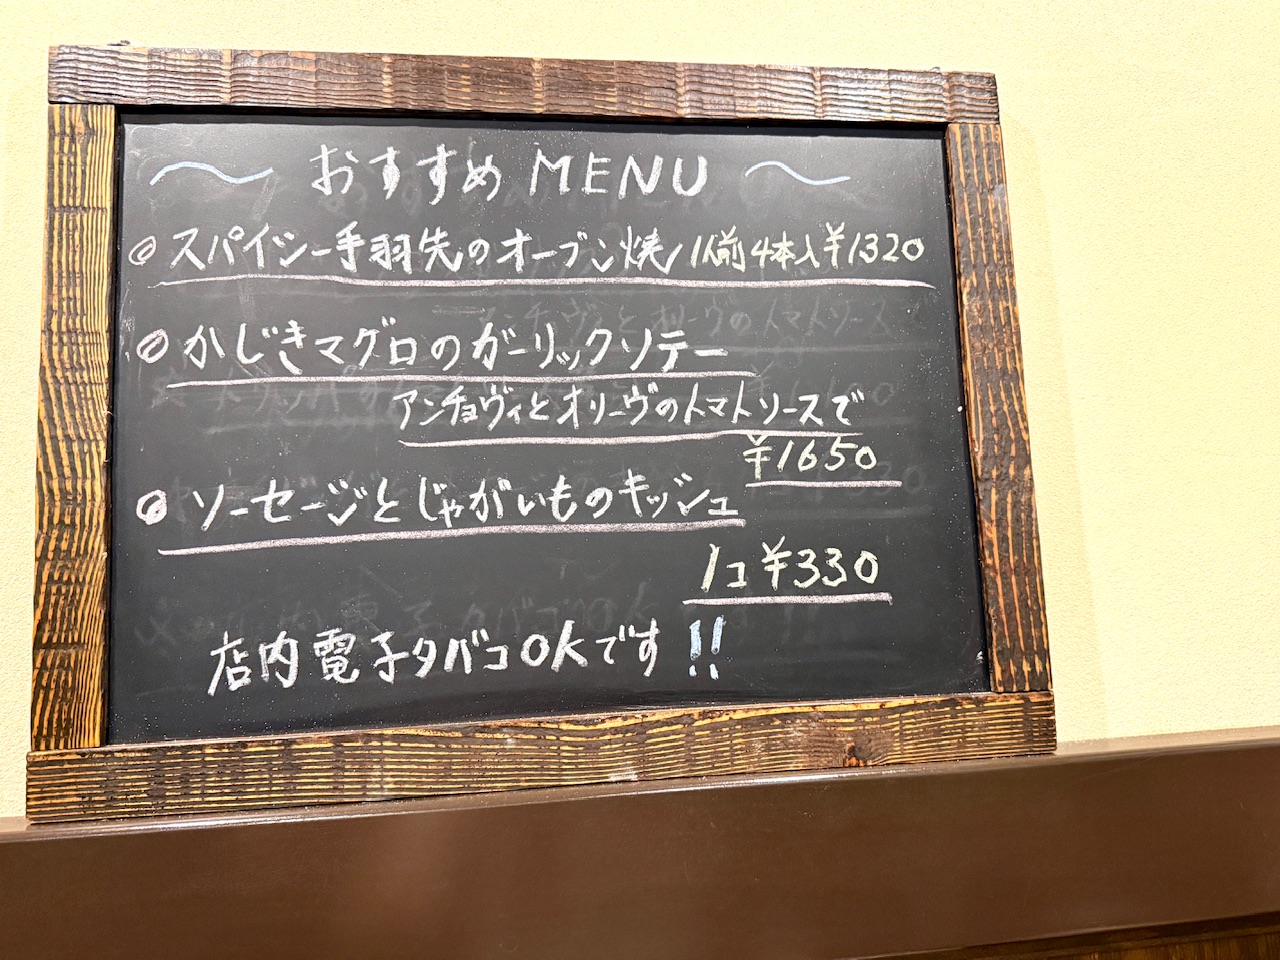 〜 おすすめ MENU 〜
◎ スパイシー手羽先のオーブン焼 1人前4本入¥1320
◎ かじきマグロのガーリックソテー
アンチョヴィとオリーヴのトマトソースで
¥1650
◎ ソーセージとじゃがいものキッシュ
1コ¥330
店内電子タバコOKです!!